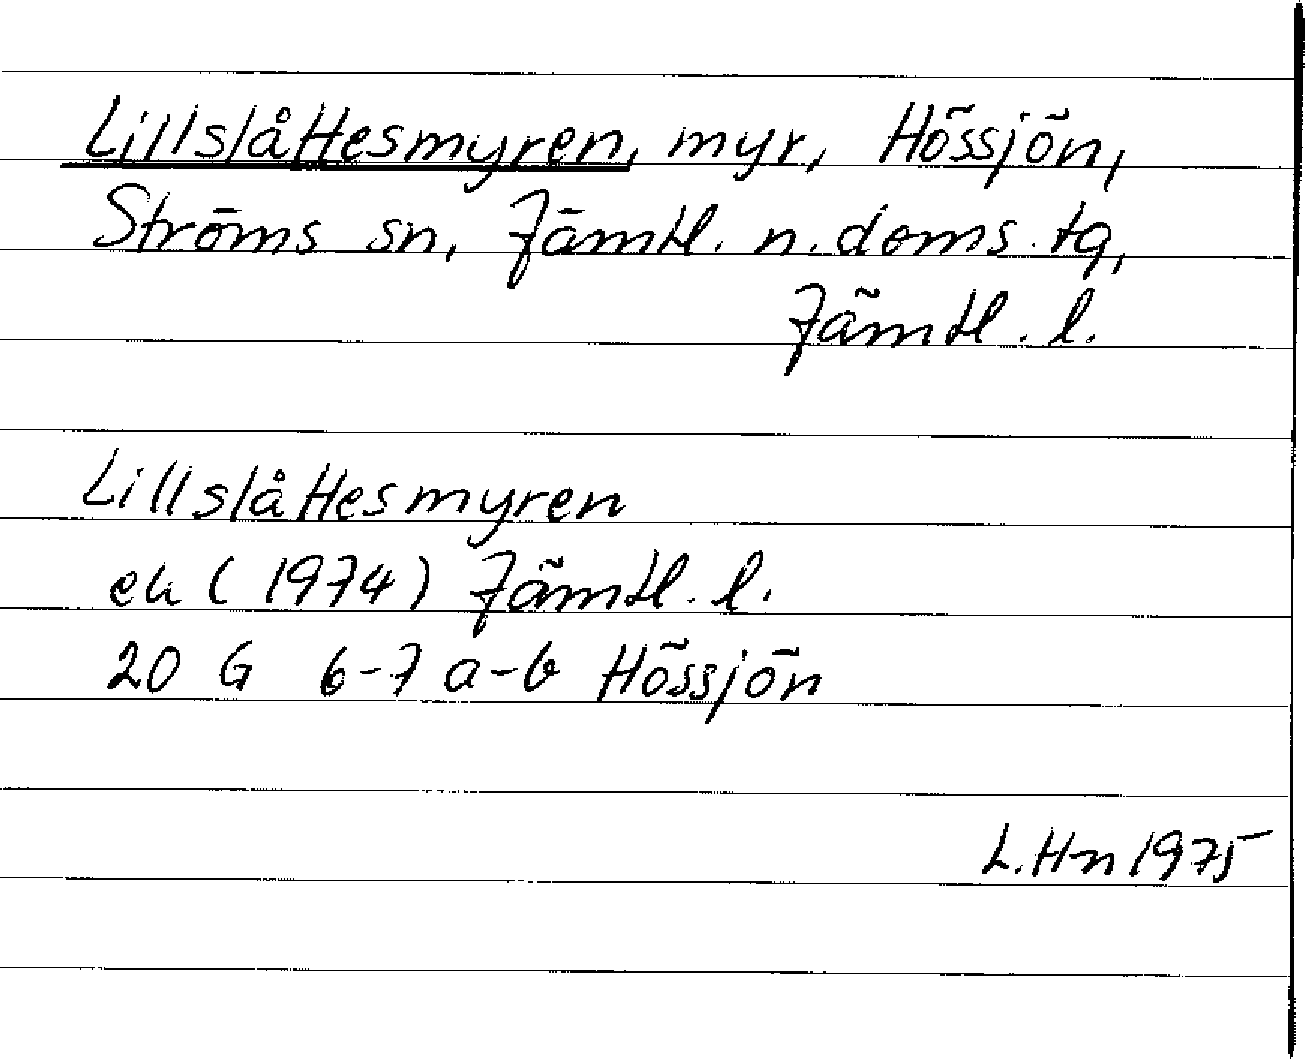 Lillslåttesmyren, myr, Hössjön,
Ströms sn, Jämtl. n. doms. tg,
Jämtl. l.
Lillslåttesmyren
ek (1974) Jämtl. l.
20 G 6-7 a-b Hössjön
L. Hn 1975